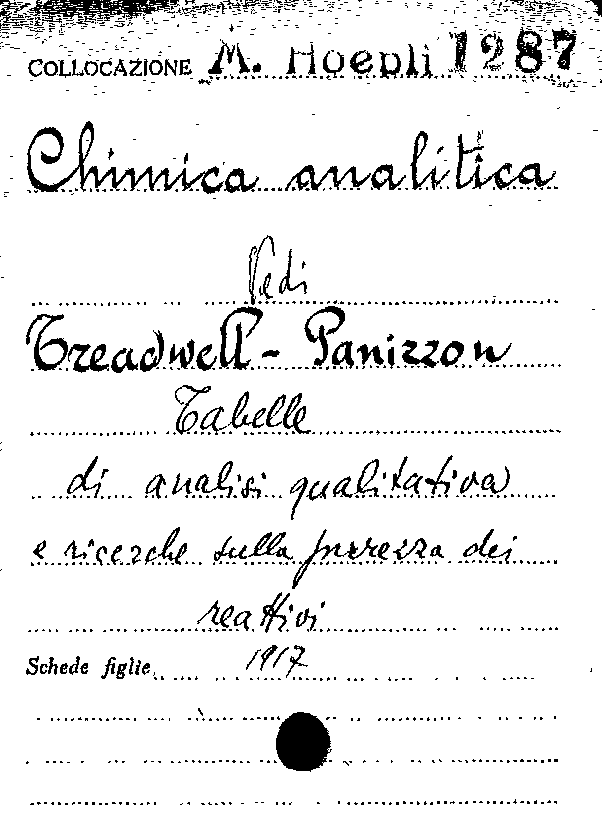 COLLOCAZIONE M. Hoepli 1287
Chimica analitica
Vedi
Treadwell - Panizzon
Tabelle
di analisi qualitativa
e ricerche sulla purezza dei
reattivi
Schede figlie 1917